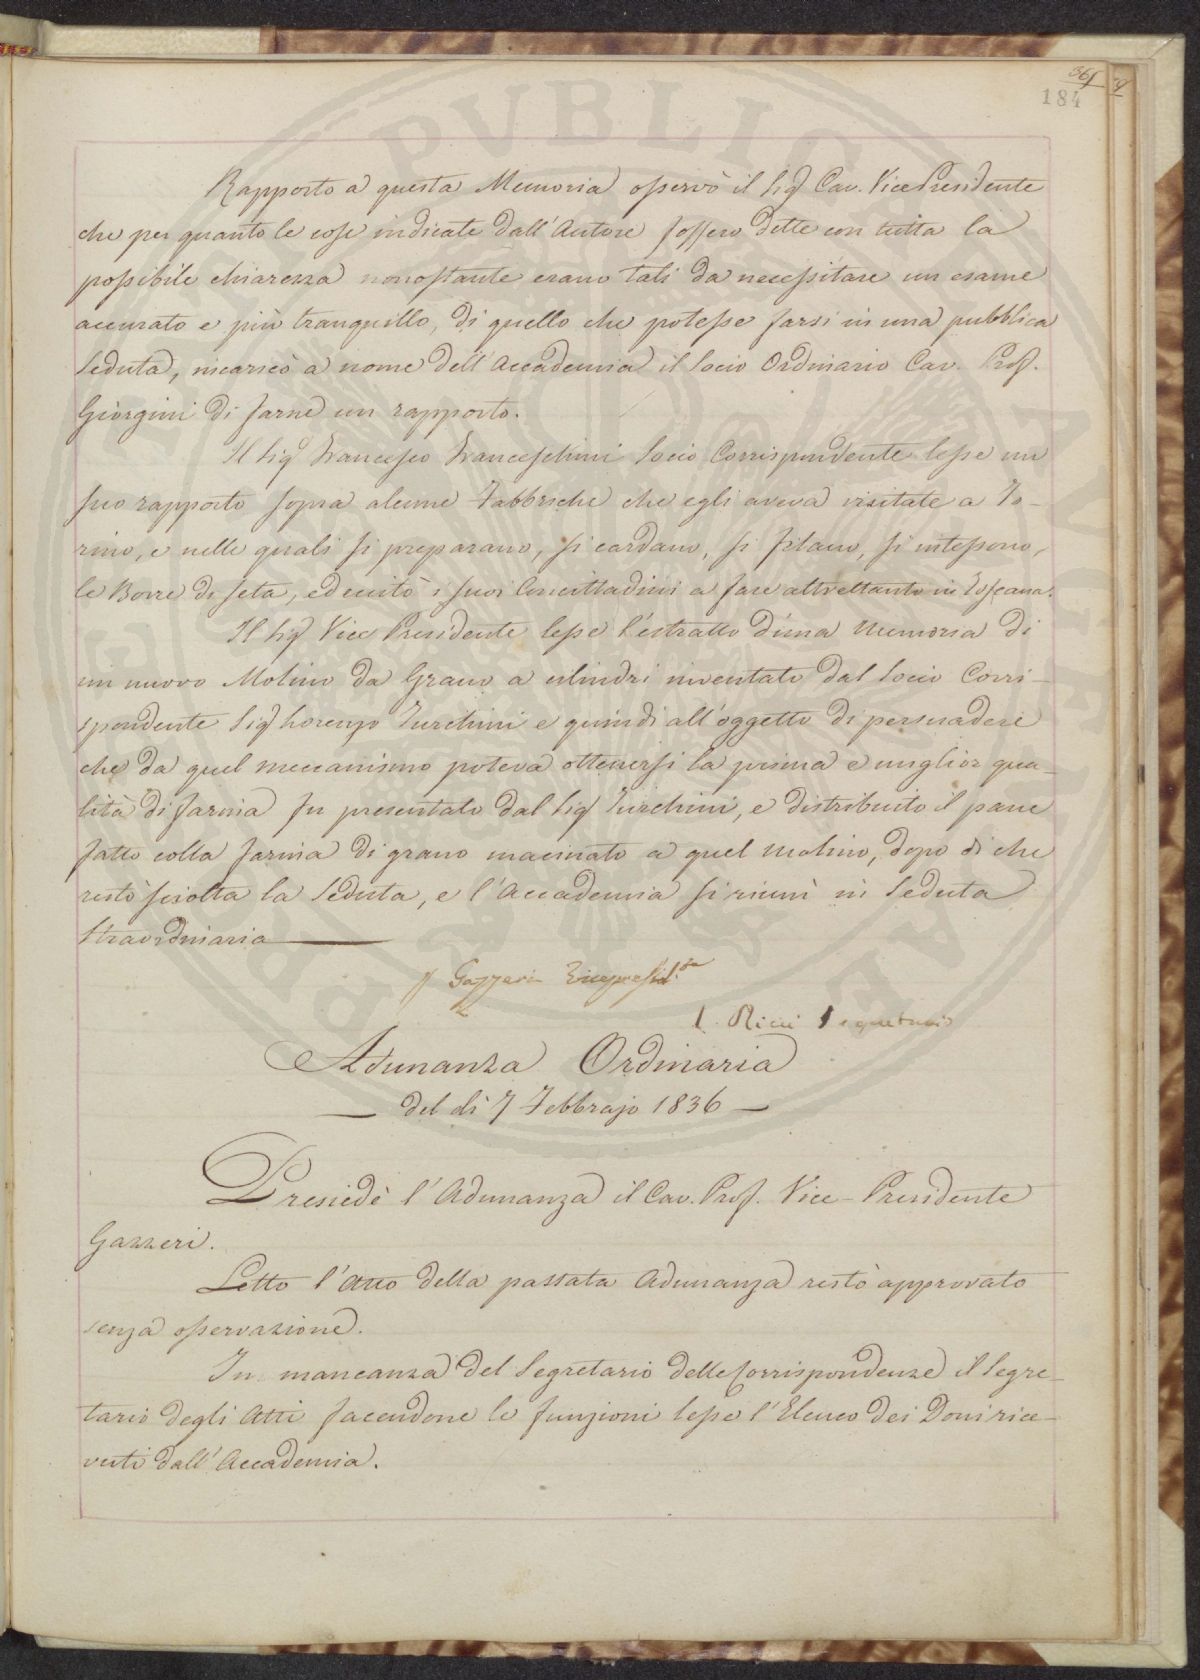 361
184
Rapporto a questa Memoria osservò il Sig.r Cav. Vice Presidente
che per quanto le cose indicate dall'Autore fossero dette con tutta la
possibile chiarezza nonostante erano tali da necessitare un esame
accurato e più tranquillo, di quello che potesse farsi in una pubblica
Seduta, incaricò a nome dell'Accademia il Socio Ordinario Cav. Prof.
Giorgini di farne un rapporto.
Il Sig.r Francesco Franceschini Socio Corrispondente lesse un
suo rapporto sopra alcune Fabbriche che egli aveva visitate a To-
rino, e nelle quali si preparano, si cardano, si filano, si intessono,
le Borre di Seta, ed eccitò i suoi Concittadini a fare altrettanto in Toscana.
Il Sig.r Vice Presidente lesse l'estratto d'una Memoria di
un nuovo Molino da Grano a cilindri inventato dal Socio Corri-
spondente Sig.r Lorenzo Turchini e quindi all'oggetto di persuadere
che da quel meccanismo poteva ottenersi la prima e miglior qua-
lità di farina fu presentato dal Sig.r Turchini, e distribuito il pane
fatto colla farina di grano macinato a quel Molino, dopo di che
restò sciolta la Seduta, e l'Accademia si riunì in Seduta
Straordinaria
Gazzeri Vicepresid.te
L. Ricci Segretario
Adunanza Ordinaria
del dì 7 Febbrajo 1836
Presiedè l'Adunanza il Cav. Prof. Vice-Presidente
Gazzeri.
Letto l'Atto della passata Adunanza restò approvato
senza osservazione.
In mancanza del Segretario delle Corrispondenze il Segre-
tario degli Atti facendone le funzioni lesse l'Elenco dei Doni rice-
vuti dall'Accademia.